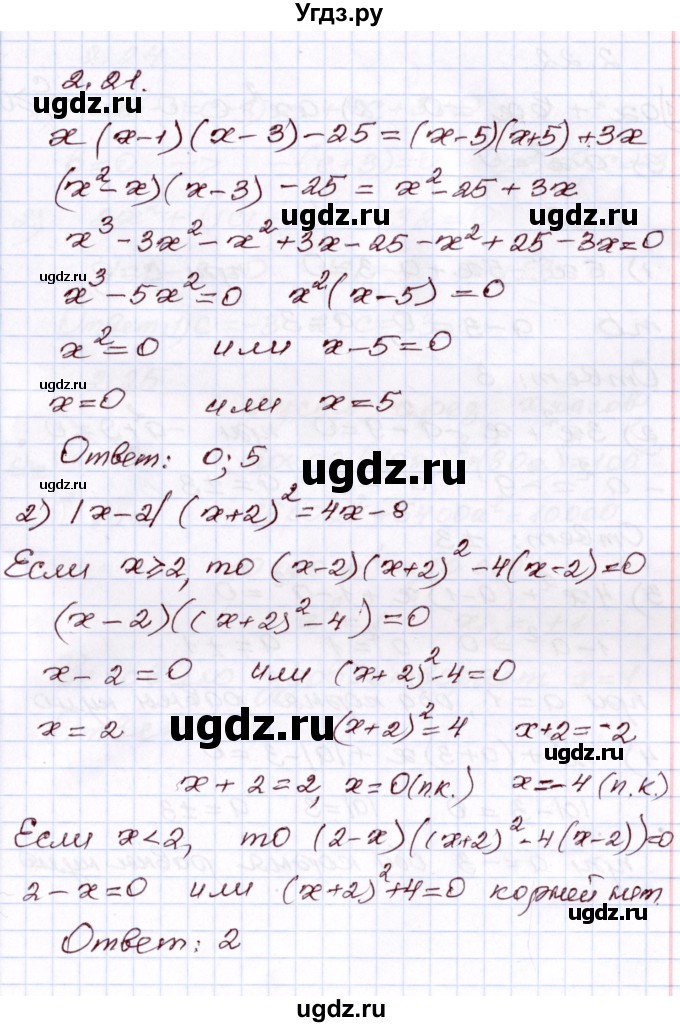 Угдз.ру
2.21.
x(x-1)(x-3)-25=(x-5)(x+5)+3x
(x²-x)(x-3)-25=x²-25+3x
x³-3x²-x²+3x-25-x²+25-3x=0
x³-5x²=0 x²(x-5)=0
x²=0 или x-5=0
x=0 или x=5
Ответ: 0; 5
2) |x-2|(x+2)²=4x-8
Если x⩾2, то (x-2)(x+2)²-4(x-2)=0
(x-2)((x+2)²-4)=0
x-2=0 или (x+2)²-4=0
x=2 (x+2)²=4 x+2=-2
x+2=2, x=0(п.к.) x=-4(п.к.)
Если x<2, то (2-x)((x+2)²-4(x-2))=0
2-x=0 или (x+2)²+4=0 корней нет.
Ответ: 2
ugdz.ru
ugdz.ru
ugdz.ru
ugdz.ru
ugdz.ru
ugdz.ru
ugdz.ru
ugdz.ru
ugdz.ru
ugdz.ru
ugdz.ru
ugdz.ru